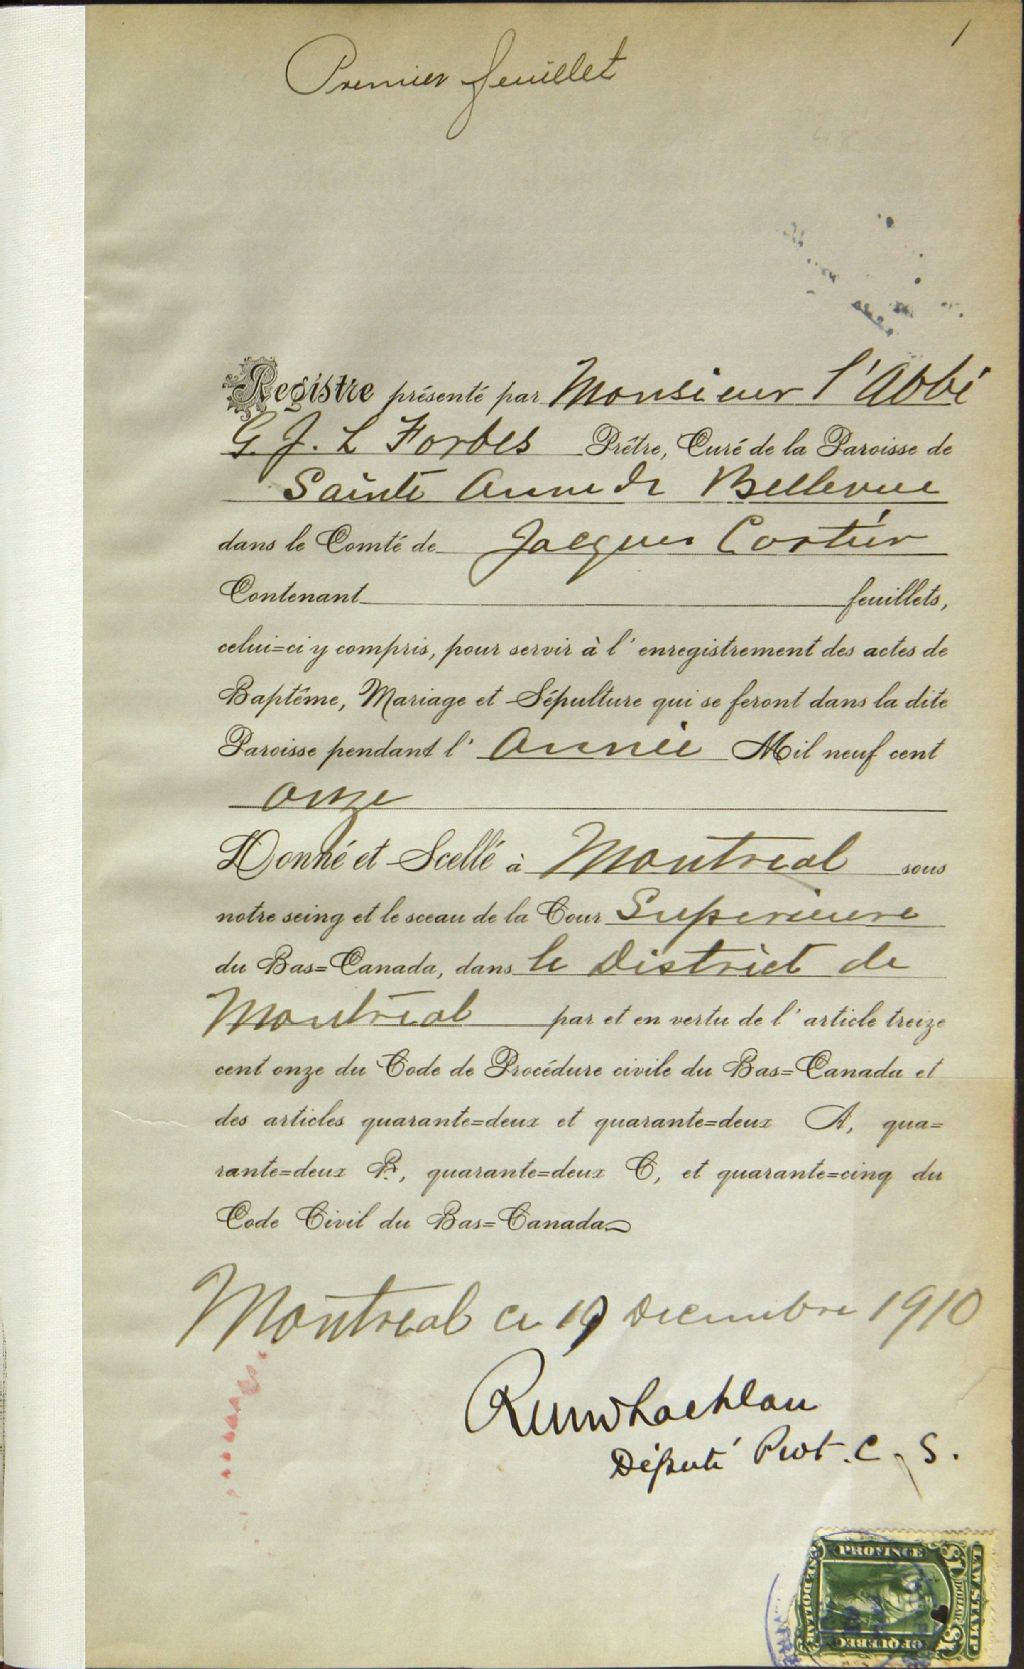 1
Premier feuillet
Registre présenté par Monsieur l'Abbé
G. J. L Forbes Prêtre, Curé de la Paroisse de
Sainte Anne de Bellevue
dans le Comté de Jacques Cartier
Contenant feuillets,
celui=ci y compris, pour servir à l' enregistrement des actes de
Baptême, Mariage et Sépulture qui se feront dans la dite
Paroisse pendant l' Année Mil neuf cent
onze
Donné et Scellé à Montreal sous
notre seing et le sceau de la Cour Superieure
du Bas=Canada, dans le District de
Montréal par et en vertu de l' article treize
cent onze du Code de Procédure civile du Bas=Canada et
des articles quarante=deux et quarante=deux A, qua=
rante=deux B, quarante=deux C, et quarante=cinq du
Code Civil du Bas=Canada
Montreal ce 19 Decembre 1910
Député Prot. C. S.
PROVINCE
OF QUEBEC
ONE DOLLAR
$1 DOLLAR $1
LAW STAMP